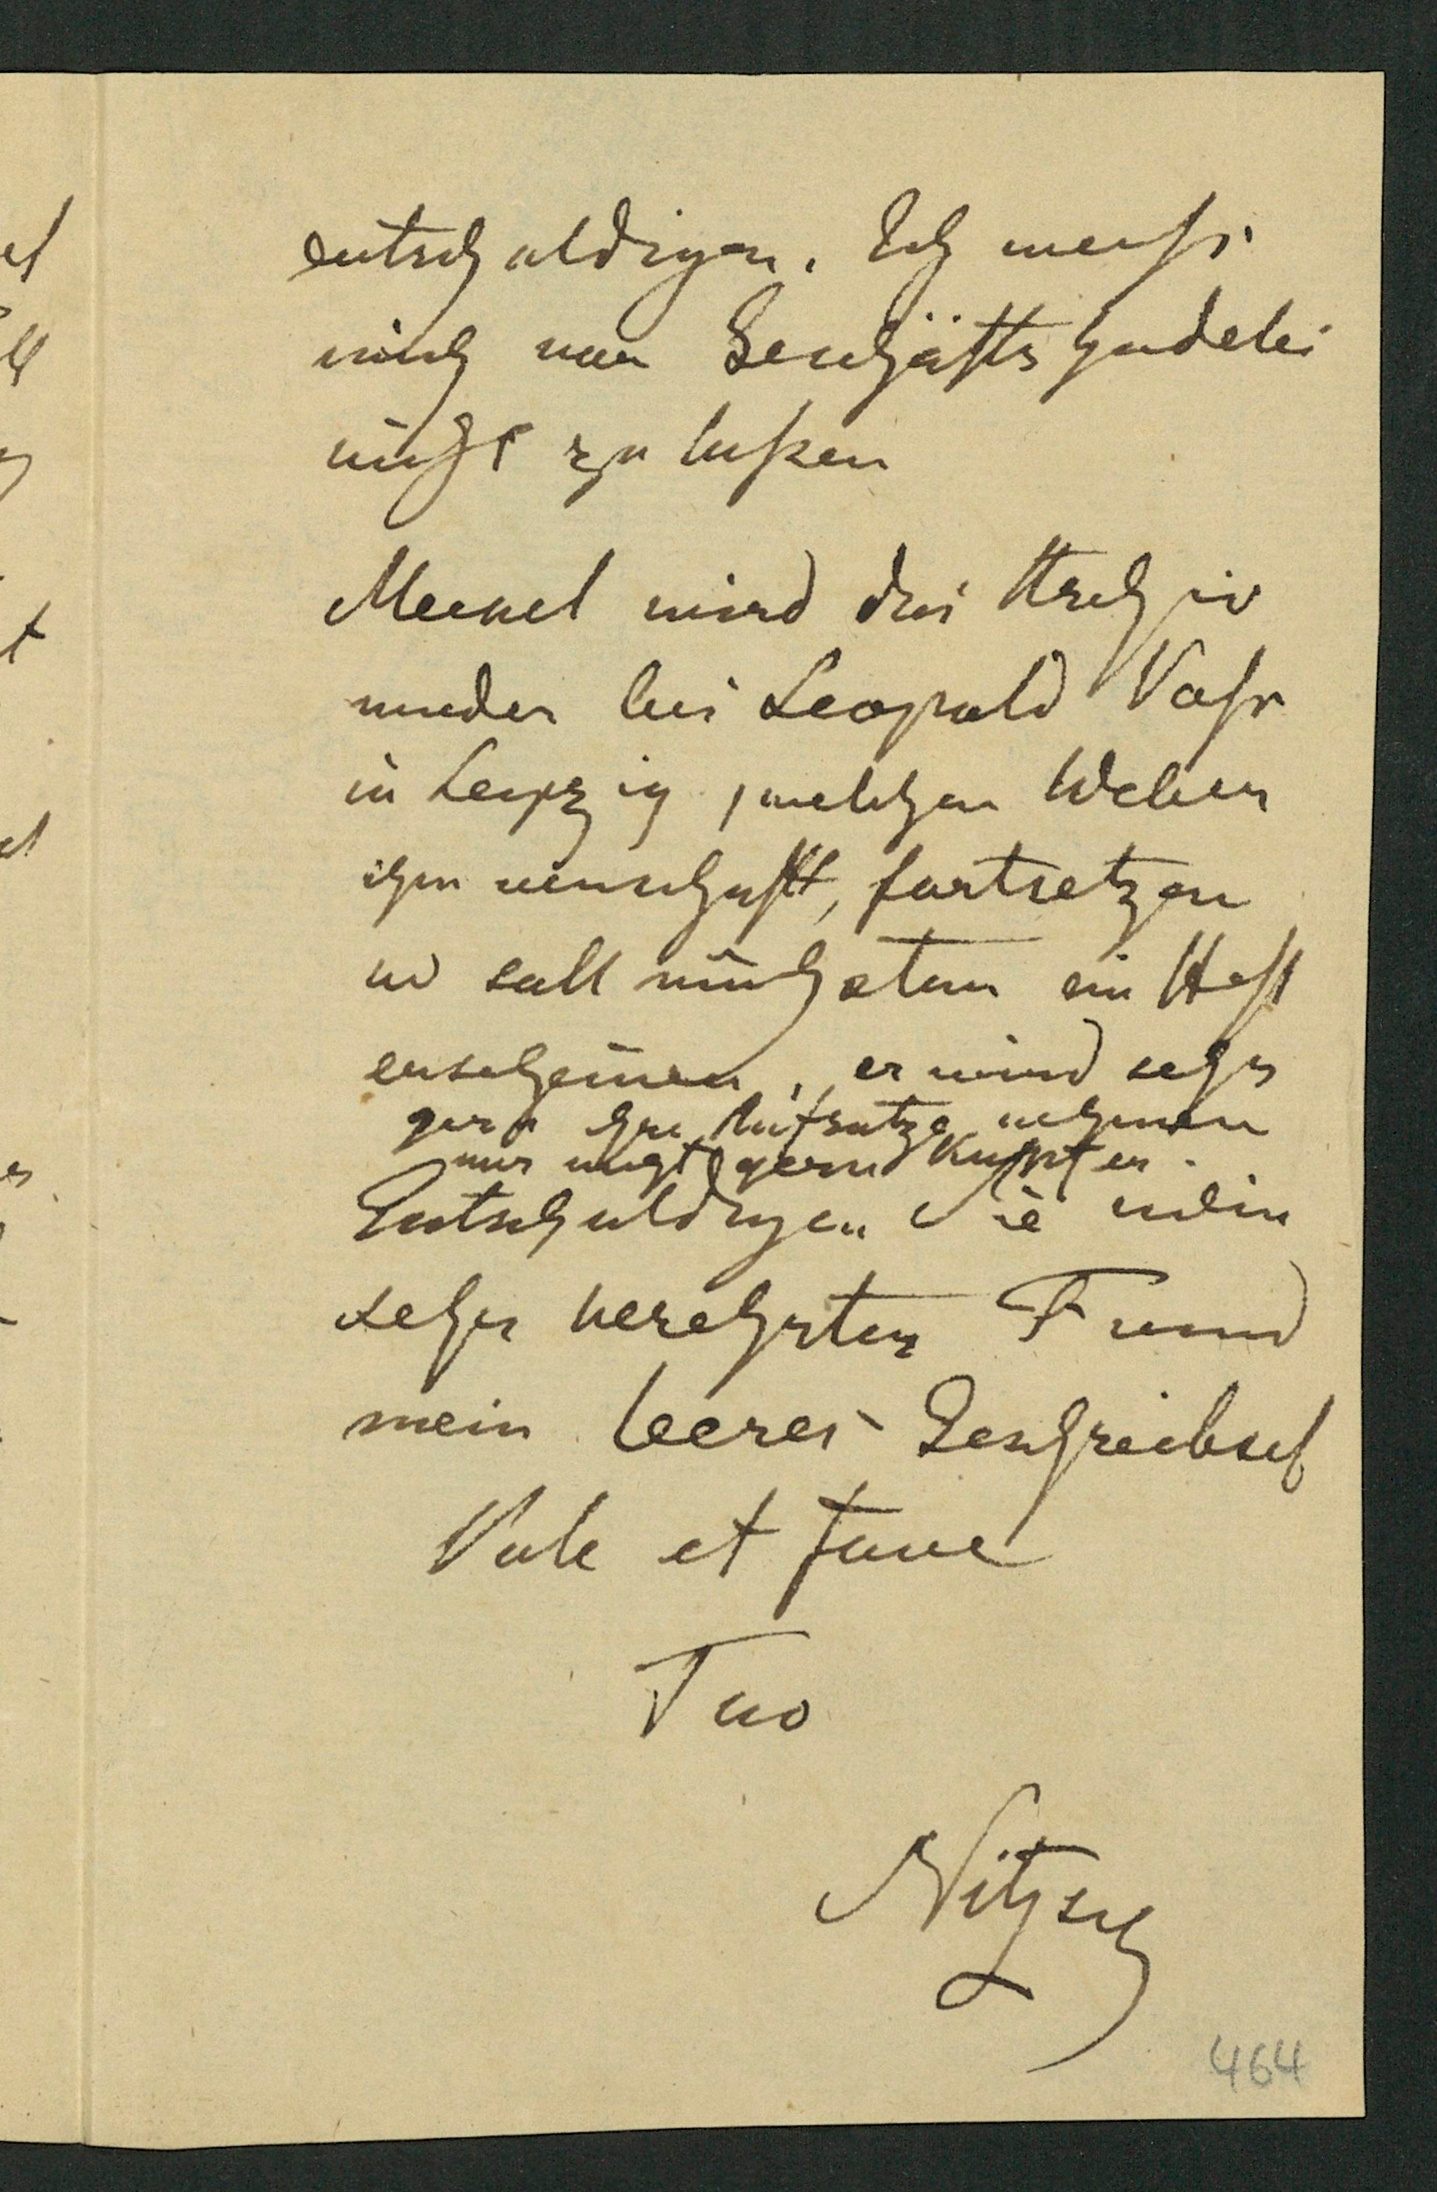 entschuldigen. Ich weiß
mich vor Geschäftshudelei
nicht zu laßen
Meckel wird das Archiv
wieder bei Leopold Voß
in Leipzig, welchen Weber
ihm verschafft, fortsetzen
und soll nächstens ein Heft
erscheinen, er wird sehr
gern Ihre Aufsätze nehmen
nur nicht gern Kupfer.
Entschuldigen Sie mein
sehr verehrter Freund
mein leeres Geschreibsel
Vale et fave
Tuo
Nitzsch
464